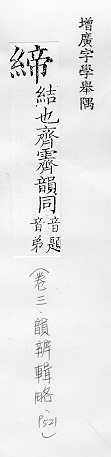 增廣字學舉隅
締 結也齊霽韻同 音題 音弟
(卷三.韻辨輯略.P521)